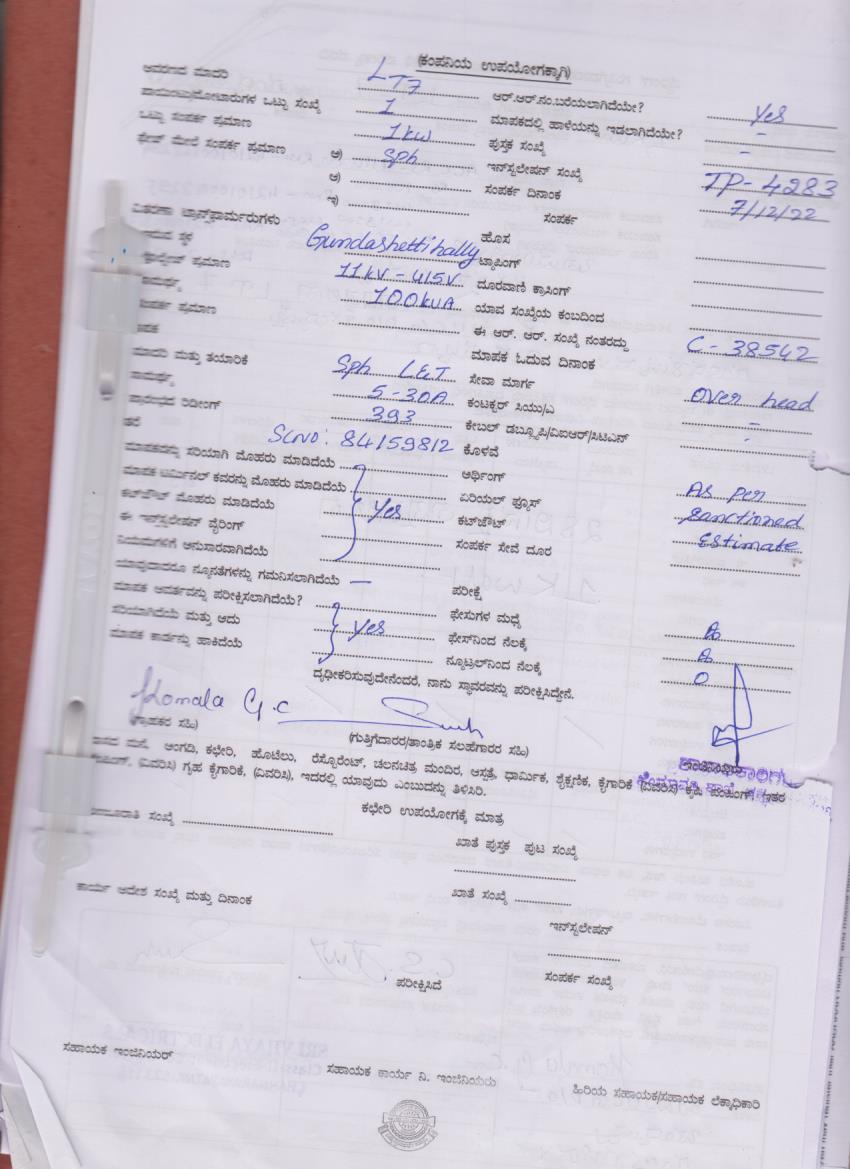 (ಕಂಪನಿಯ ಉಪಯೋಗಕ್ಕಾಗಿ)
ಆವರಣದ ಮಾದರಿ LT7 ಆರ್.ಆರ್.ನಂ.ಬರೆಯಲಾಗಿದೆಯೇ? Yes
ಪಾಯಿಂಟು/ಮೋಟಾರುಗಳ ಒಟ್ಟು ಸಂಖ್ಯೆ 1 ಮಾಪಕದಲ್ಲಿ ಹಾಳೆಯನ್ನು ಇಡಲಾಗಿದೆಯೇ? -
ಒಟ್ಟು ಸಂಪರ್ಕ ಪ್ರಮಾಣ 1kw ಪುಸ್ತಕ ಸಂಖ್ಯೆ -
ಫೇಜ್ ಮೇಲೆ ಸಂಪರ್ಕ ಪ್ರಮಾಣ ಅ) Sph ಇನ್‌ಸ್ಟಲೇಷನ್ ಸಂಖ್ಯೆ TP-4283
ಆ) ಸಂಪರ್ಕ ದಿನಾಂಕ 7/12/22
ಇ) ಸಂಪರ್ಕ
ವಿತರಣಾ ಟ್ರಾನ್ಸ್‌ಫಾರ್ಮರುಗಳು ಹೊಸ
ಸ್ಥಳ Gundashettihally ಟ್ಯಾಪಿಂಗ್
ಪ್ರಮಾಣ 11kV-415V ದೂರವಾಣಿ ಕ್ರಾಸಿಂಗ್
100kVA ಯಾವ ಸಂಖ್ಯೆಯ ಕಂಬದಿಂದ
ಪ್ರಮಾಣ ಈ ಆರ್. ಆರ್. ಸಂಖ್ಯೆ ನಂತರದ್ದು C-38542
ಮಾಪಕ ಓದುವ ದಿನಾಂಕ
ಮಾದರಿ ಮತ್ತು ತಯಾರಿಕೆ Sph L&T ಸೇವಾ ಮಾರ್ಗ Over head
ಸಾಮರ್ಥ್ಯ 5-30A ಕಂಟಕ್ಟರ್ ಸಿಯು/ಎ -
ಪ್ರಾರಂಭದ ರಿಡೀಂಗ್ 393 ಕೇಬಲ್ ಡಬ್ಲ್ಯೂಪಿ/ಎಐಆರ್/ಸಿಟಿಎನ್ -
ಇತರೆ SLNO: 84159812 ಕೊಳವೆ
ಮಾಪಕವನ್ನು ಸರಿಯಾಗಿ ಮೊಹರು ಮಾಡಿದೆಯೆ ಅರ್ಥಿಂಗ್ As per
ಮಾಪಕ ಟರ್ಮಿನಲ್ ಕವರನ್ನು ಮೊಹರು ಮಾಡಿದೆಯೆ ಏರಿಯಲ್ ಫ್ಯೂಸ್ Sanctioned
ಕಟ್‌ಔಟ್ ಮೊಹರು ಮಾಡಿದೆಯೆ Yes ಕಟ್‌ಔಟ್ Estimate
ಈ ಇನ್‌ಸ್ಟಲೇಷನ್ ವೈರಿಂಗ್ ಸಂಪರ್ಕ ಸೇವೆ ದೂರ
ನಿಯಮಗಳಿಗೆ ಅನುಸಾರವಾಗಿದೆಯೆ
ಯಾವುದಾದರೂ ನ್ಯೂನತೆಗಳನ್ನು ಗಮನಿಸಲಾಗಿದೆಯೆ — ಪರೀಕ್ಷೆ
ಮಾಪಕ ಆವರ್ತವನ್ನು ಪರೀಕ್ಷಿಸಲಾಗಿದೆಯೆ? ಫೇಸುಗಳ ಮಧ್ಯೆ
ಸರಿಯಾಗಿದೆಯೆ ಮತ್ತು ಅದು Yes ಫೇಸ್‌ನಿಂದ ನೆಲಕ್ಕೆ
ಮಾಪಕ ಕಾರ್ಡನ್ನು ಹಾಕಿದೆಯೆ ನ್ಯೂಟ್ರಲ್‌ನಿಂದ ನೆಲಕ್ಕೆ 0
ದೃಢೀಕರಿಸುವುದೇನೆಂದರೆ, ನಾನು ಸ್ಥಾವರವನ್ನು ಪರೀಕ್ಷಿಸಿದ್ದೇನೆ.
Komala G.C
(ಗ್ರಾಹಕರ ಸಹಿ) (ಗುತ್ತಿಗೆದಾರರ/ತಾಂತ್ರಿಕ ಸಲಹೆಗಾರರ ಸಹಿ)
ವಾಸದ ಮನೆ, ಅಂಗಡಿ, ಕಛೇರಿ, ಹೊಟೆಲು, ರೆಸ್ಟೊರೆಂಟ್, ಚಲನಚಿತ್ರ ಮಂದಿರ, ಆಸ್ಪತ್ರೆ, ಧಾರ್ಮಿಕ, ಶೈಕ್ಷಣಿಕ, ಕೈಗಾರಿಕೆ (ವಿವರಿಸಿ) ಕೃಷಿ ಪಂಪಿಂಗ್, ಇತರ
(ವಿವರಿಸಿ) ಗೃಹ ಕೈಗಾರಿಕೆ, (ವಿವರಿಸಿ), ಇದರಲ್ಲಿ ಯಾವುದು ಎಂಬುದನ್ನು ತಿಳಿಸಿರಿ.
ಕಛೇರಿ ಉಪಯೋಗಕ್ಕೆ ಮಾತ್ರ
ಸಂಖ್ಯೆ ಖಾತೆ ಪುಸ್ತಕ ಪುಟ ಸಂಖ್ಯೆ
ಕಾರ್ಯ ಆದೇಶ ಸಂಖ್ಯೆ ಮತ್ತು ದಿನಾಂಕ ಖಾತೆ ಸಂಖ್ಯೆ
ಇನ್‌ಸ್ಟಲೇಷನ್
, ಪರೀಕ್ಷಿಸಿದೆ ಸಂಪರ್ಕ ಸಂಖ್ಯೆ
ಸಹಾಯಕ ಇಂಜಿನಿಯರ್ ಸಹಾಯಕ ಕಾರ್ಯ ನಿ. ಇಂಜಿನಿಯರು ಹಿರಿಯ ಸಹಾಯಕ/ಸಹಾಯಕ ಲೆಕ್ಕಾಧಿಕಾರಿ